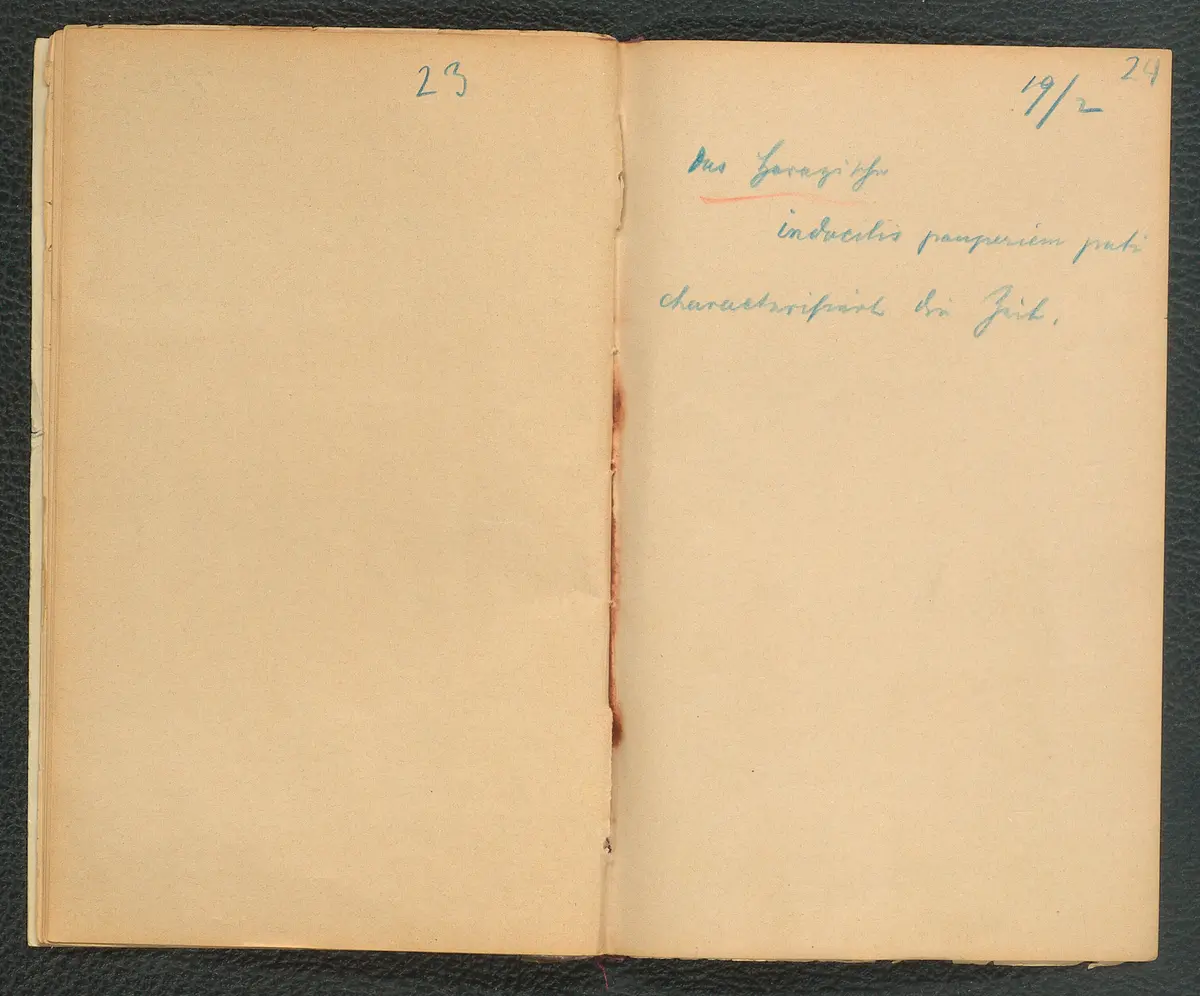 23
24
19/2
Das Horazische
indocilis pauperiem pati
characterisiert die Zeit.